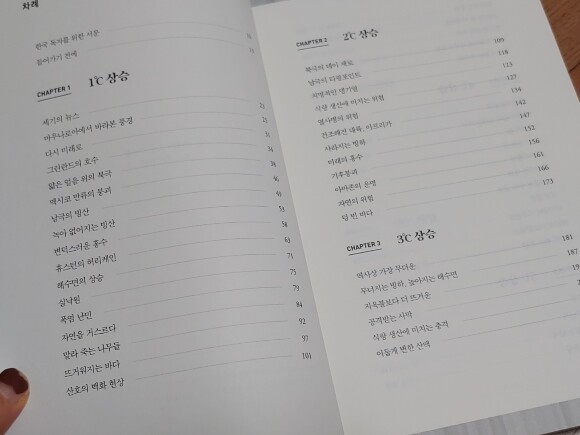 차례
한국 독자를 위한 서문
들어가기 전에
CHAPTER 1 1℃ 상승
세기의 뉴스
마우나로아에서 바라본 풍경
다시 미래로
그린란드의 호수
얇은 얼음 위의 북극
멕시코 만류의 붕괴
남극의 빙산
녹아 없어지는 빙산
변덕스러운 홍수 58
휴스턴의 허리케인 63
해수면의 상승 71
실낙원 75
폭염 난민 79
자연을 거스르다 84
말라 죽는 나무들 92
뜨거워지는 바다 97
산호의 백화 현상 101
CHAPTER 2 2℃ 상승
북극의 데이 제로 118
남극의 티핑포인트 123
치명적인 열기 127
식량 생산에 미치는 위협 134
열사병의 위험 142
건조해진 대륙, 아프리카 147
사라지는 빙하 152
미래의 홍수 156
기후붕괴 161
아마존의 운명 166
자연의 위험 173
텅 빈 바다
CHAPTER 3 3℃ 상승
역사상 가장 무더운 181
무너지는 빙하, 높아지는 해수면 187
지옥불보다 더 뜨거운
공격받는 사막
식량 생산에 미치는 충격
어둡게 변한 산맥